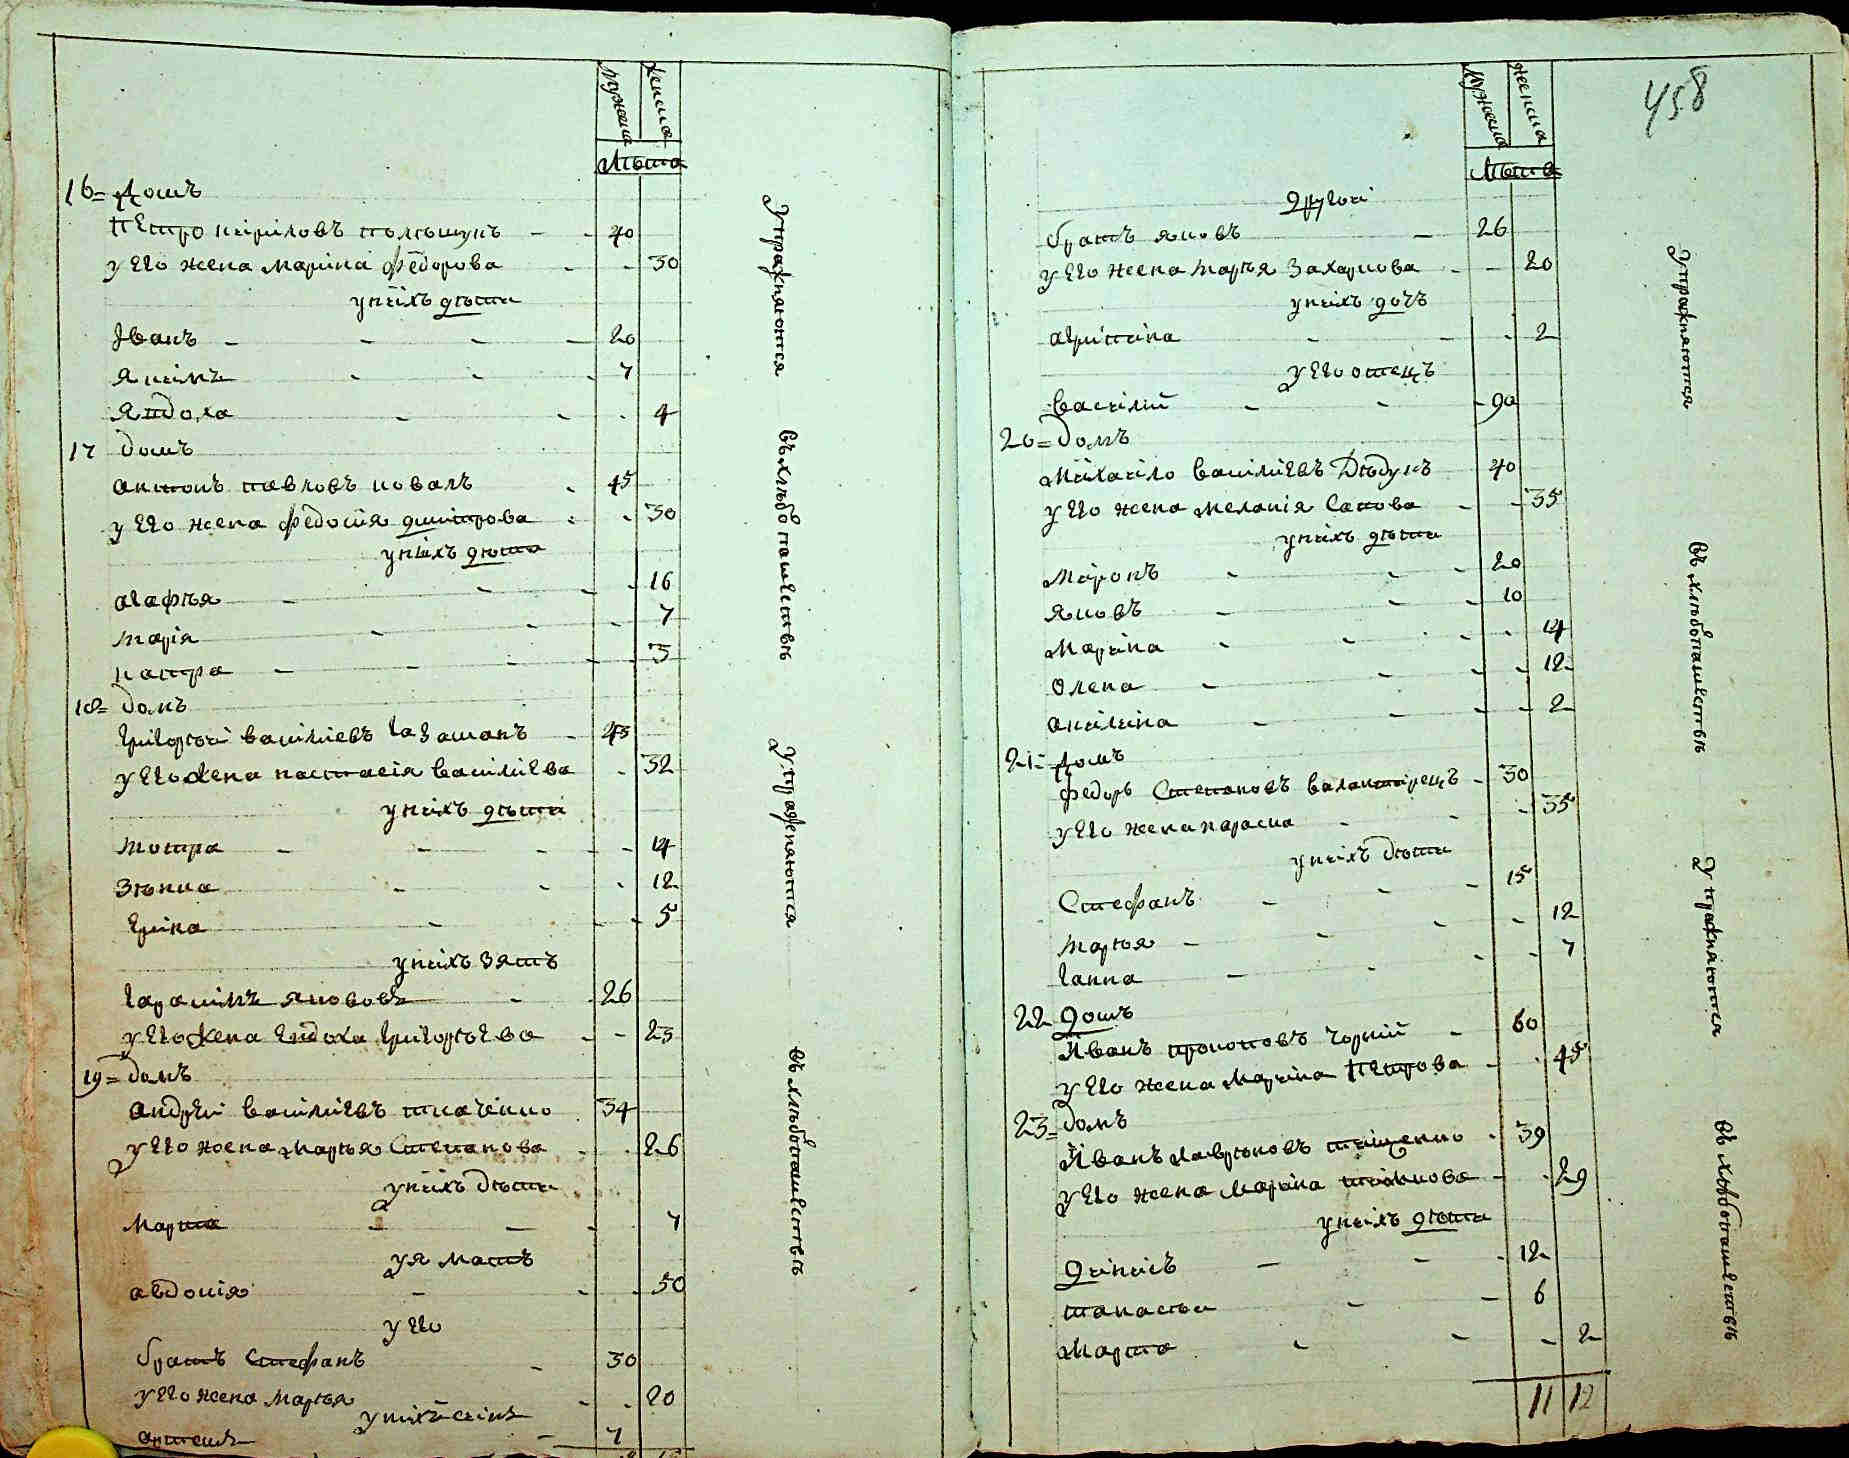 мужска женска
Лѣта
16= домъ
Петро кириловъ - - 40
у Его жена марина федорова - - 30
у нихъ дѣти
Иванъ - - - 20
Якимъ - - - 7
Явдоха - - - 4
17 домъ
антонъ павловъ коваль - 45
у Его жена федосия дмитрова - - 30
у нихъ дѣти
агафия - - - 16
мария - - - 7
катра - - - 3
18= домъ
григорий василиевъ - 45
у Его жена настасия василиева - 32
у нихъ дѣти
мотра - - - 14
Зѣнка - - - 12
Ирина - - - 5
у нихъ Зять
гарасимъ яковъ - 26
у Его жена Евдоха григорьева - - 23
19= домъ
андрей василиевъ ткаченко 34
у Его жена марья Степанова - - 26
у нихъ дѣти
марта - - - 7
ея мать
авдотия - - - 50
у Его
братъ Стефанъ - 30
у Его жена марья - - 20
у нихъ синъ
артемъ - 1
Упражняются
въ хлѣбопашествѣ
Упражняются
въ хлѣбопашествѣ
458
мужска женска
Лѣта
другой
братъ яковъ - 26
у Его жена марья Захаркова - - 20
у нихъ дочъ
- - - 2
у Его отецъ
василий - - - 90
20= домъ
михайло василиевъ Дѣдукъ 40
у Его жена мелания Савова - - 35
у нихъ дѣти
миронъ - - - 20
яковъ - - - 10
марина - - - - 14
олена - - - - 12
акилина - - - - 2
21= домъ
федоръ Степановъ - 30
у Его жена параска - - - 35
у нихъ дѣти
Стефанъ - - - 15
марья - - - - 12
ганна - - - - 7
22 домъ
Иванъ прокоповъ чорний - 60
у Его жена марина петрова - - 45
23= домъ
Иванъ лавриновъ тищенко - 39
у Его жена марина - - 29
у нихъ дѣти
Денисъ - - - 12
панасъ - - 6
марта - - - 2
11 12
Упражняются
въ хлѣбопашествѣ
Упражняются
въ хлѣбопашествѣ